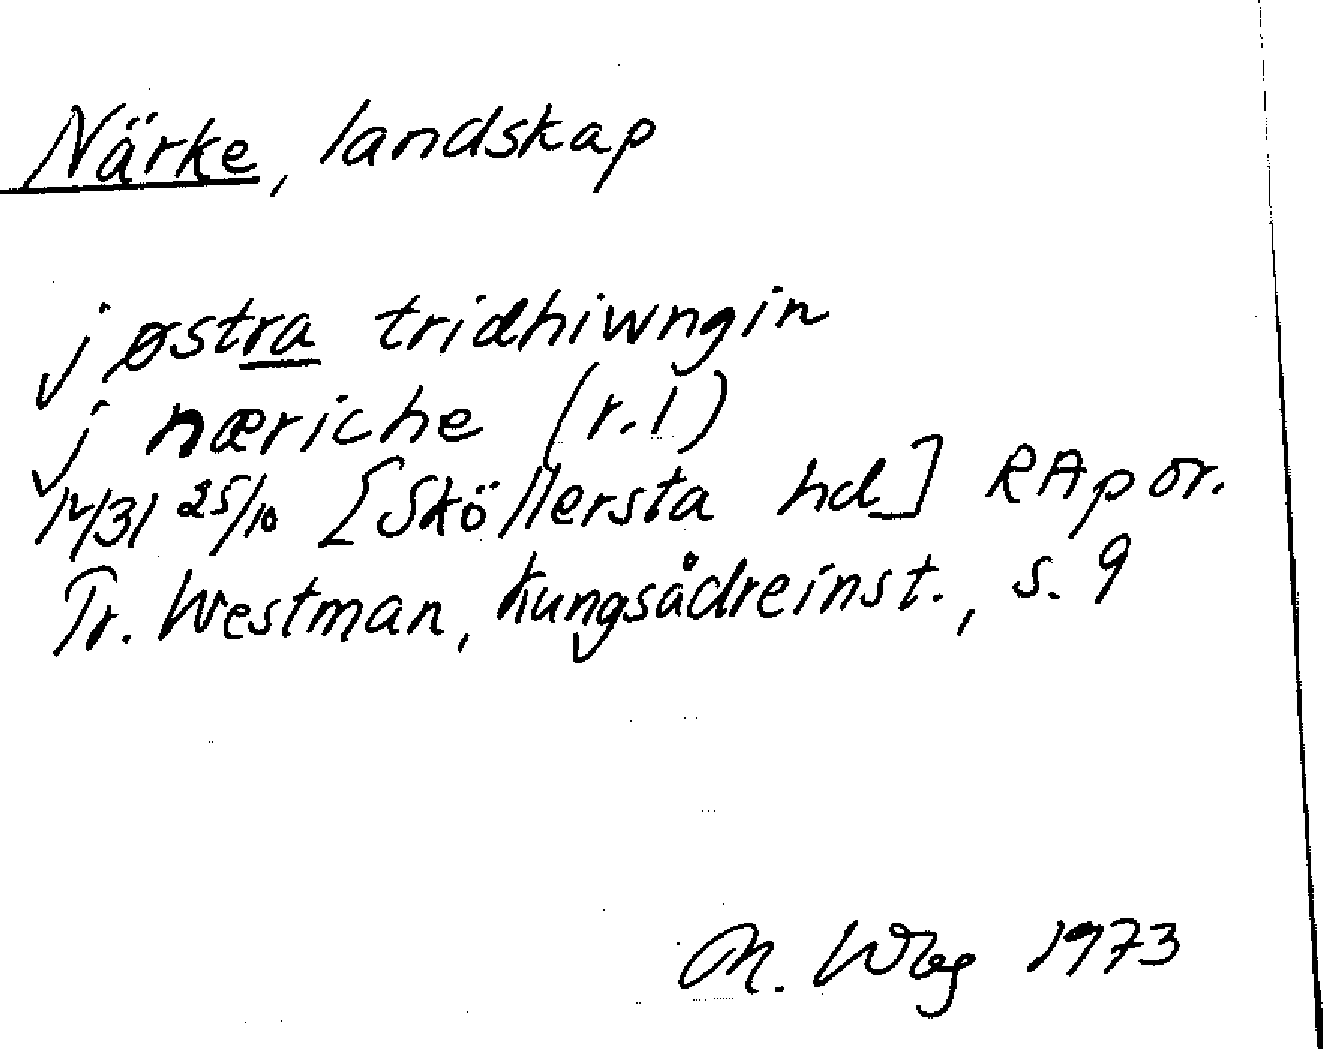 Närke, landskap
j østra tridhiwngin
j næriche (r.1)
1431 25/10 [Sköllersta hd] RAp or.
Tr. Westman, Kungsådreinst., s. 9
M. Wbg 1973